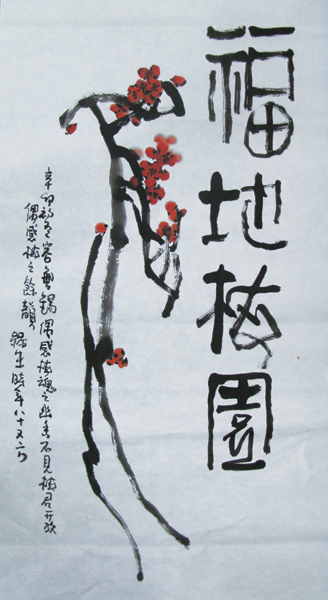 福地梅園
辛卯初冬客無錫偶感梅魂之幽香不見梅君開放
偶感梅之餘韻
錫生時年八十又六